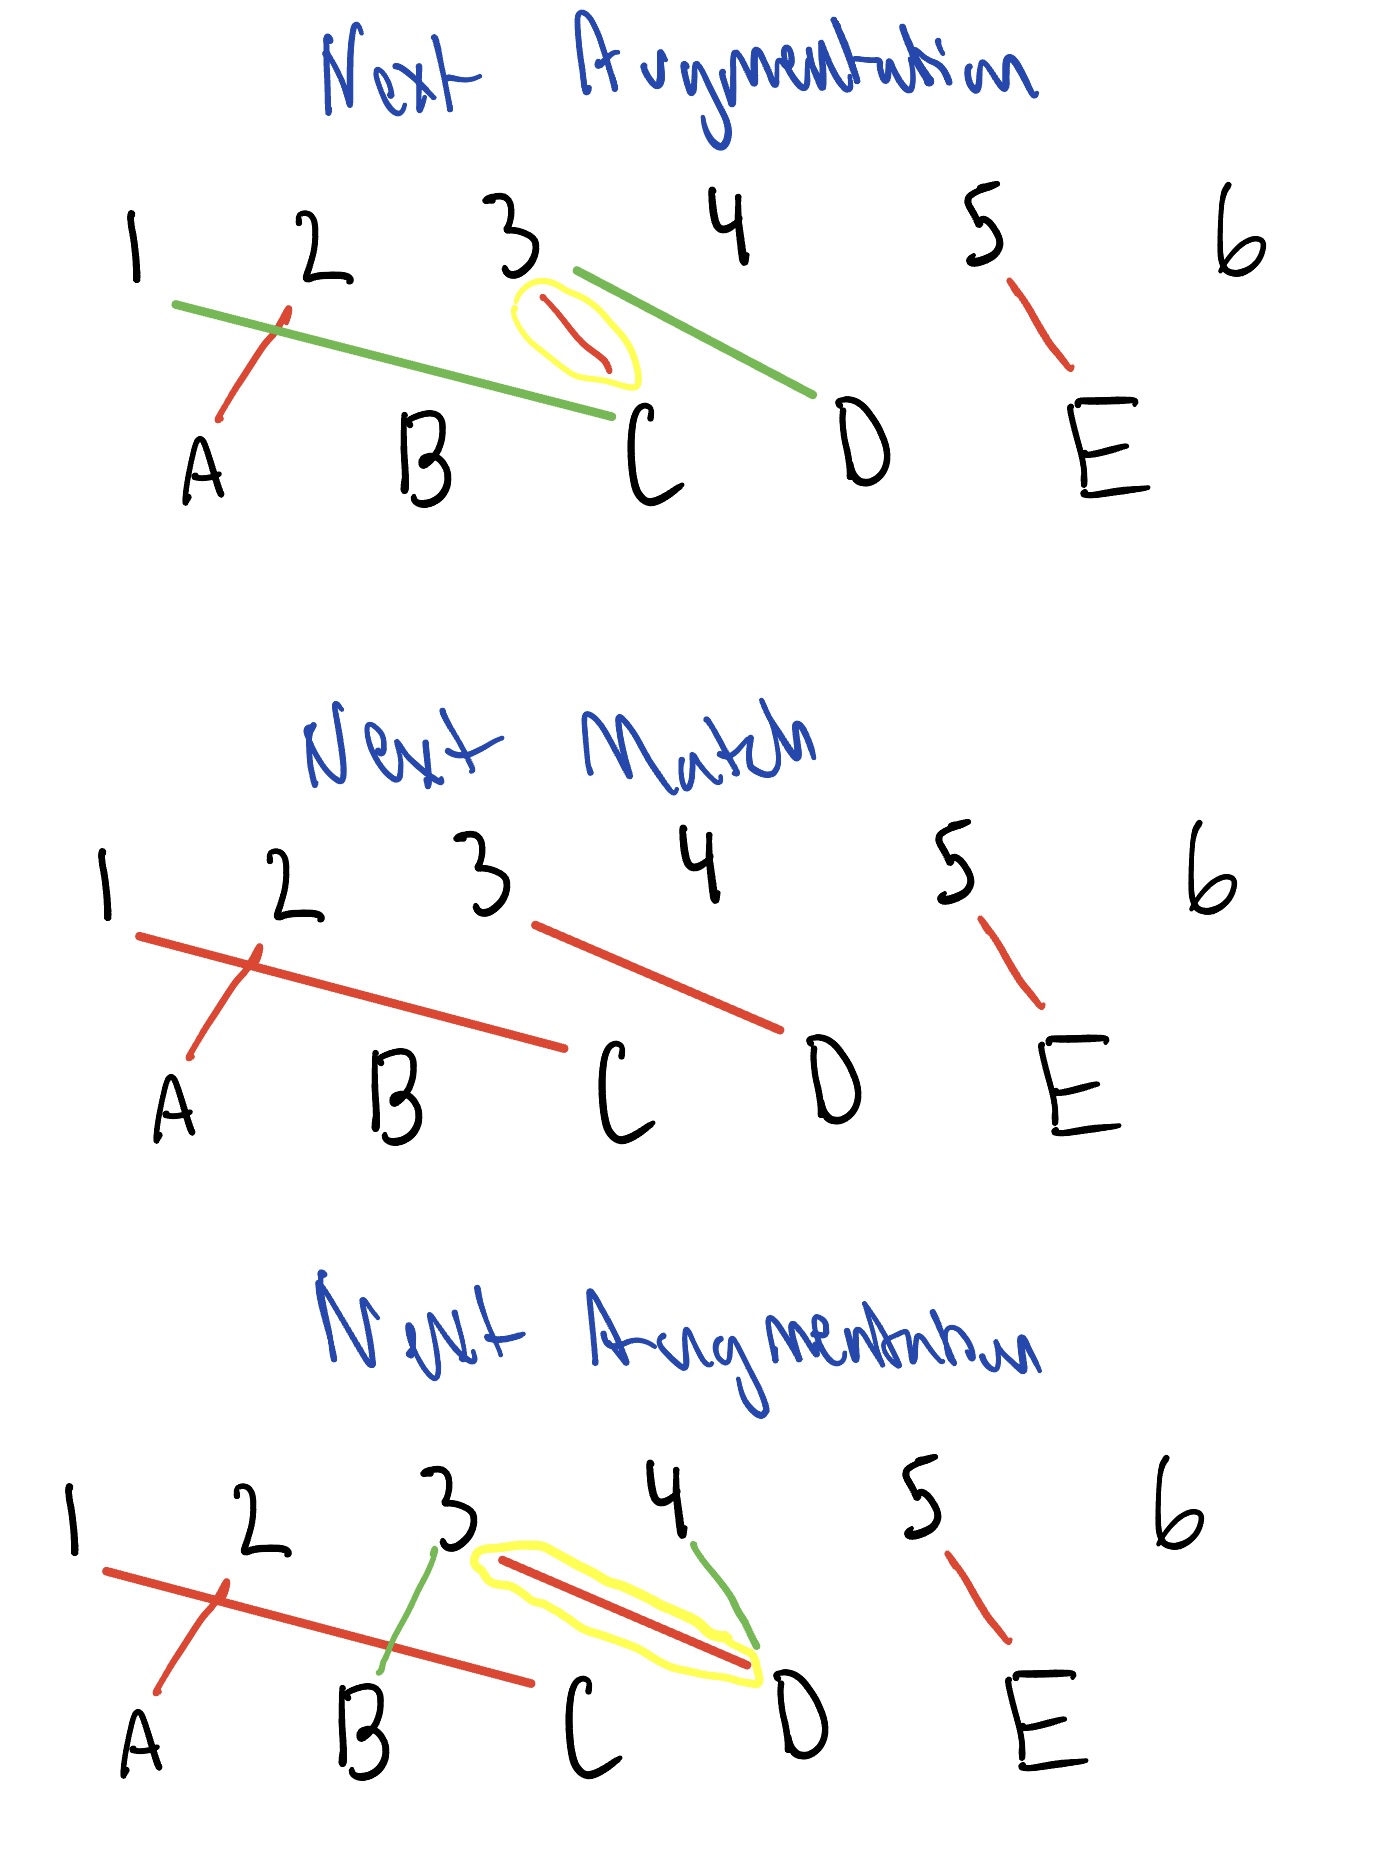 Next Augmentation
1 2 3 4 5 6
A B C D E
Next Match
1 2 3 4 5 6
A B C D E
Next Augmentation
1 2 3 4 5 6
A B C D E